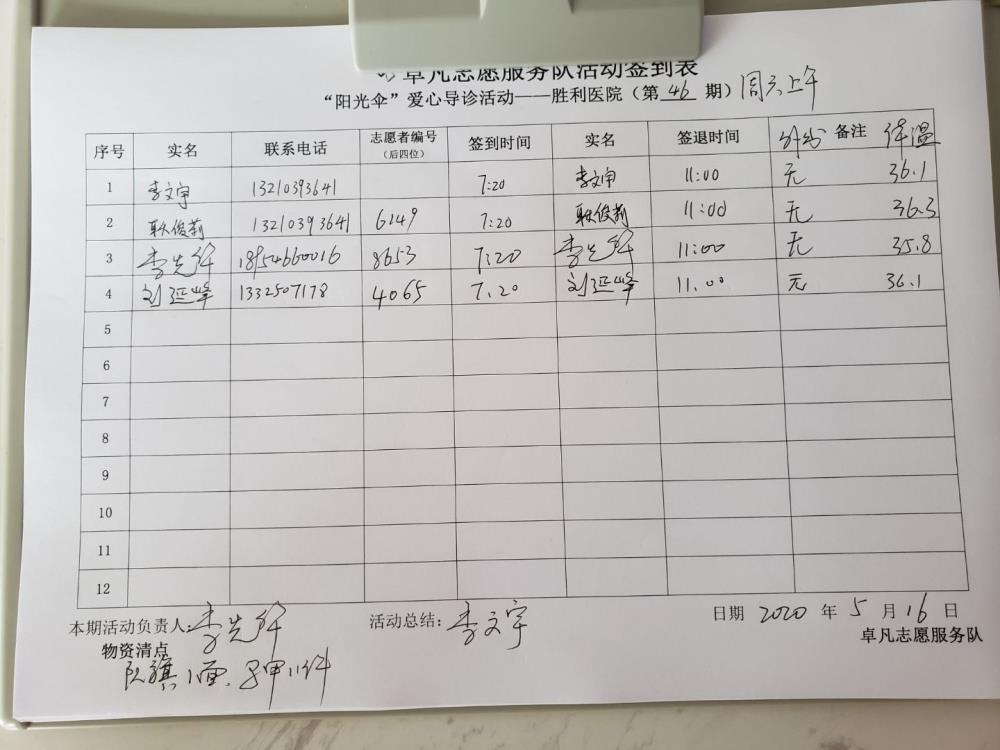 卓凡志愿服务队活动签到表
“阳光伞”爱心导诊活动——胜利医院（第 46 期）周六上午
序号 实名 联系电话 志愿者编号（后四位） 签到时间 实名 签退时间 外出 备注 体温
1 李文宇 13210393641 7:20 李文宇 11:00 无 36.1
2 耿俊莉 13210393641 6149 7:20 耿俊莉 11:00 无 36.3
3 李先纤 18954660016 8653 7:20 李先纤 11:00 无 35.8
4 刘延峰 1332507178 4065 7.20 刘延峰 11.00 无 36.1
5
6
7
8
9
10
11
12
本期活动负责人:李先纤 活动总结:李文宇 日期 2020 年 5 月 16 日
物资清点 卓凡志愿服务队
队旗1面.马甲11件